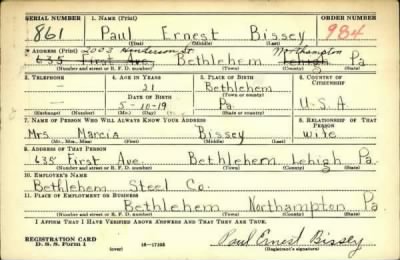 SERIAL NUMBER 1. NAME (Print) ORDER NUMBER
861 Paul Ernest Bissey 984
(First) (Middle) (Last)
2003 Henderson St Northampton
2. ADDRESS (Print)
635 First Ave. Bethlehem Lehigh Pa
(Number and street or R. F. D. number) (Town) (County) (State)
3. TELEPHONE 4. AGE IN YEARS 5. PLACE OF BIRTH 6. COUNTRY OF CITIZENSHIP
— 21 Bethlehem
DATE OF BIRTH (Town or county)
— 5-10-19 Pa. U.S.A
(Exchange) (Number) (Mo.) (Day) (Yr.) (State or country)
7. NAME OF PERSON WHO WILL ALWAYS KNOW YOUR ADDRESS 8. RELATIONSHIP OF THAT PERSON
Mrs Marcia Bissey wife
(Mr., Mrs., Miss) (First) (Middle) (Last)
9. ADDRESS OF THAT PERSON
635 First Ave. Bethlehem Lehigh Pa
(Number and street or R. F. D. number) (Town) (County) (State)
10. EMPLOYER'S NAME
Bethlehem Steel Co.
11. PLACE OF EMPLOYMENT OR BUSINESS
Bethlehem Northampton Pa
(Number and street or R. F. D. number) (Town) (County) (State)
I AFFIRM THAT I HAVE VERIFIED ABOVE ANSWERS AND THAT THEY ARE TRUE.
REGISTRATION CARD
D. S. S. Form 1 (over) 16—17105 Paul Ernest Bissey
(Registrant's signature)